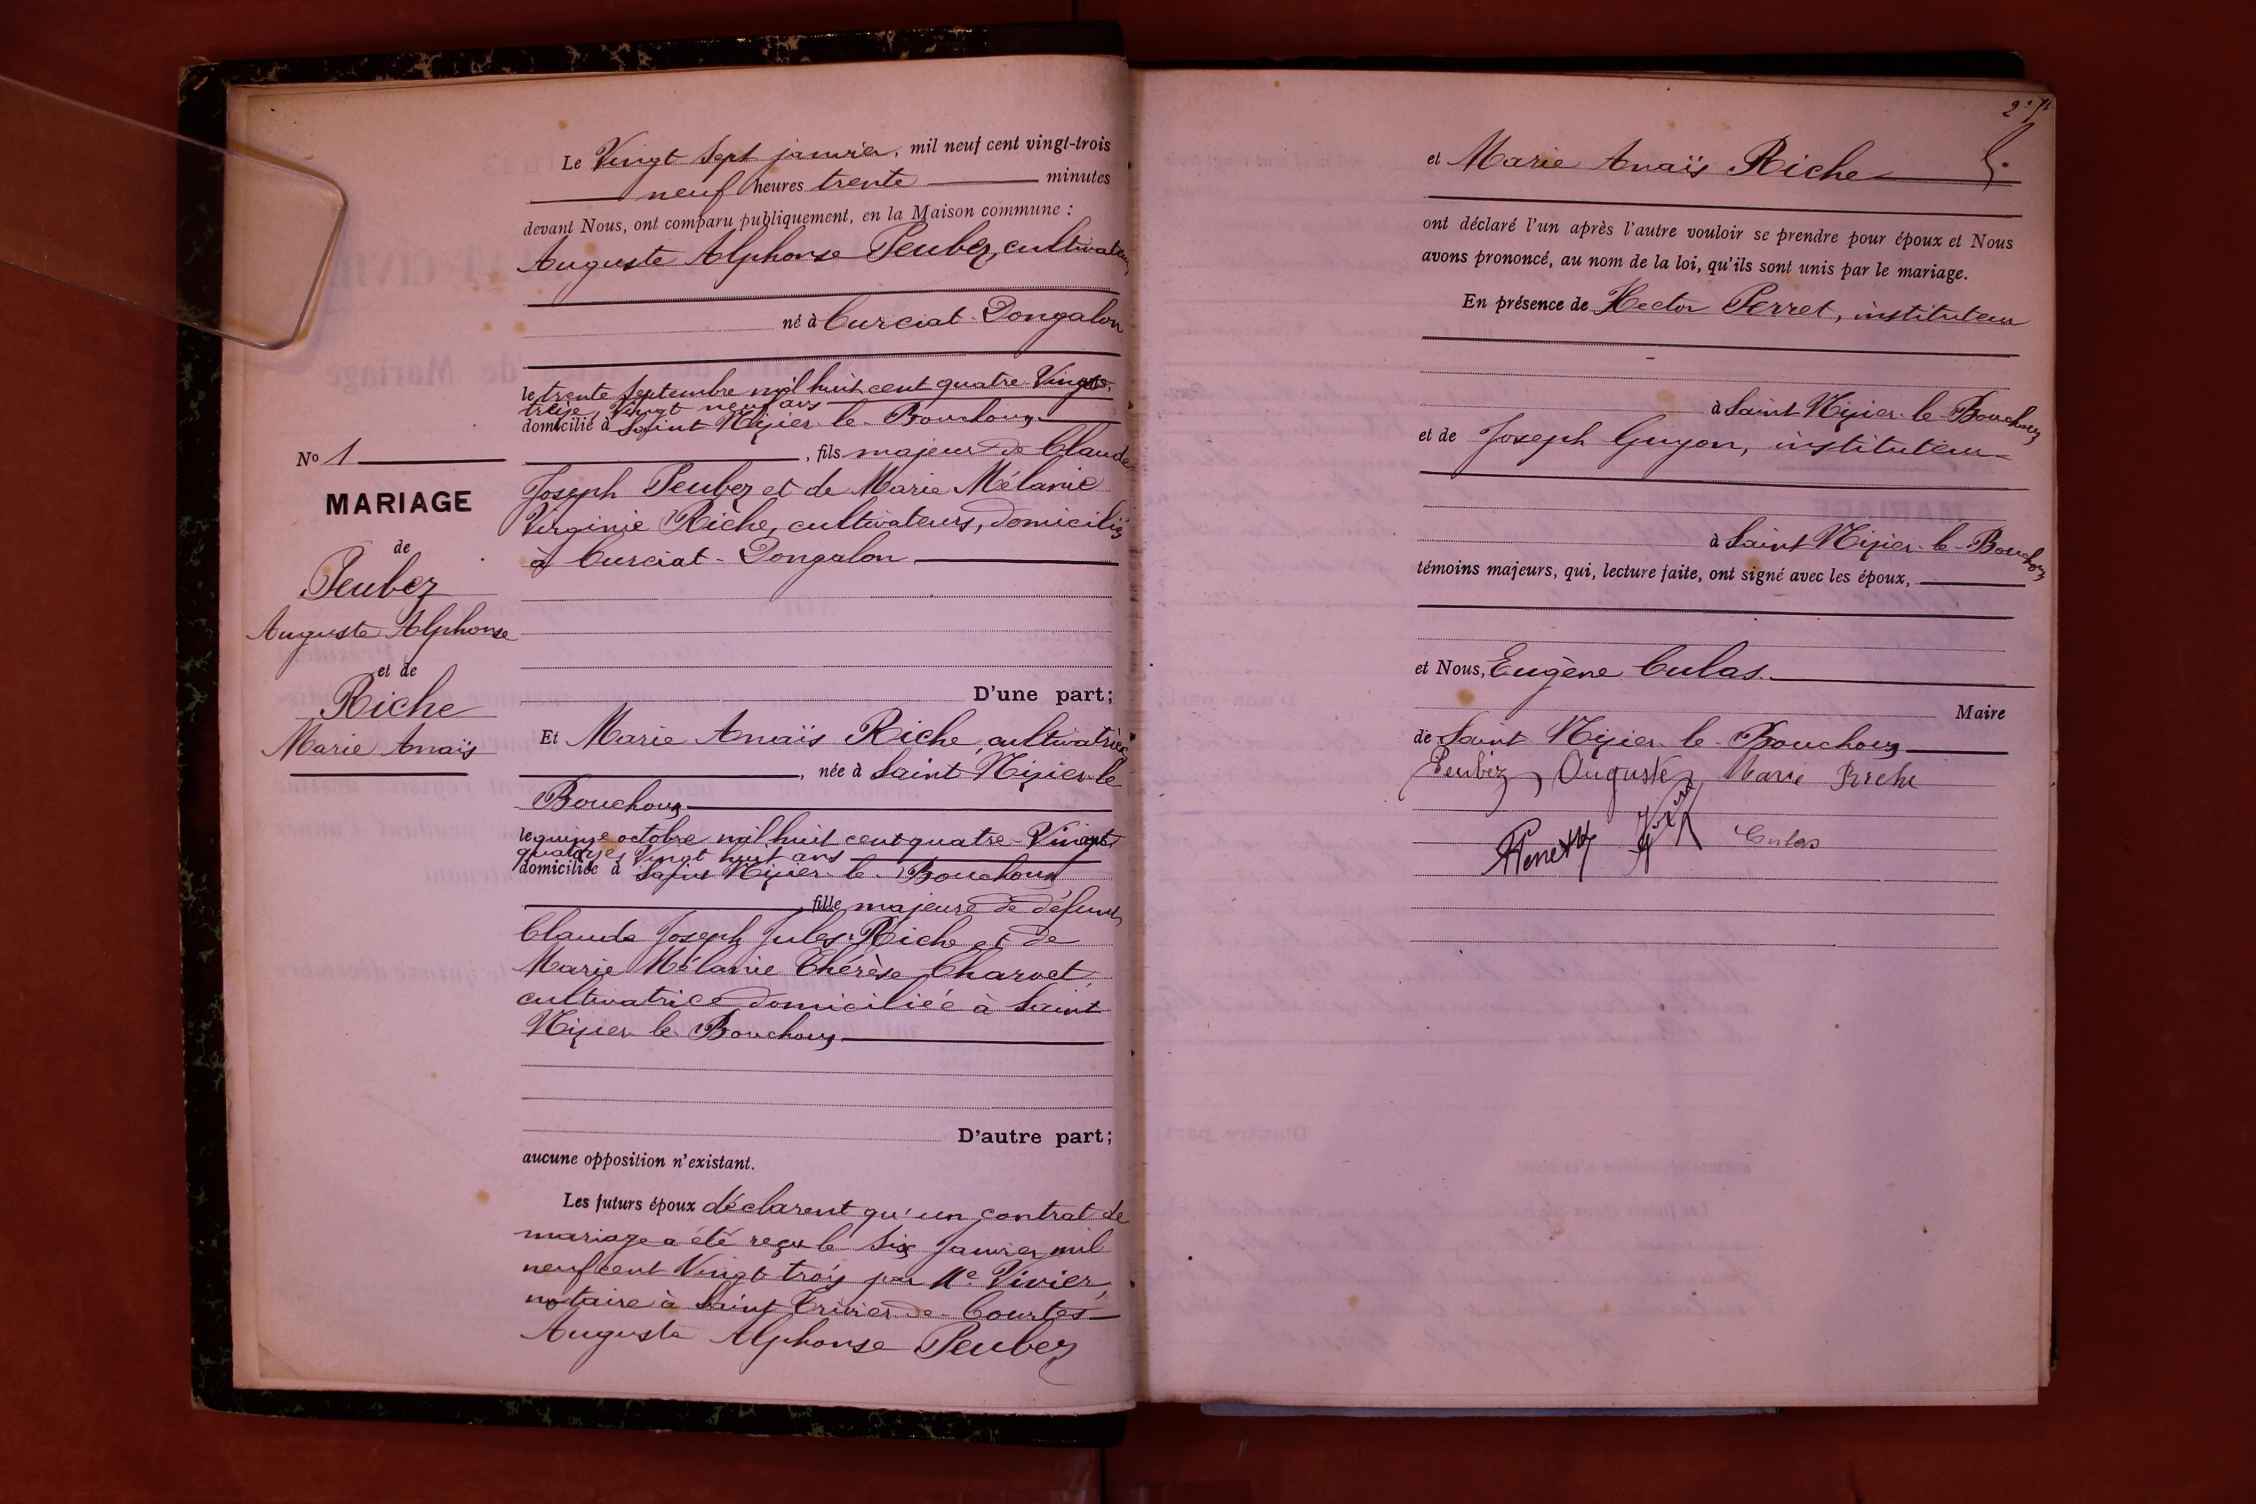 Le Vingt Sept janvier, mil neuf cent vingt-trois
neuf heures trente minutes
devant Nous, ont comparu publiquement, en la Maison commune :
Auguste Alphonse Peubez, cultivateur
né à Curciat-Dongalon
le trente Septembre mil huit cent quatre-Vingt-
treize, Vingt neuf ans
domicilié à Saint Nizier-le-Bouchoux
, fils majeur de Claude
Joseph Peubez et de Marie Mélanie
Virginie Riche, cultivateurs, domiciliés
à Curciat-Dongalon
No 1
MARIAGE
de
Peubez
Auguste Alphonse
et de
Riche
Marie Anaïs
D'une part;
Et Marie Anaïs Riche, cultivatrice
, née à Saint Nizier-le
Bouchoux
le quinze octobre mil huit cent quatre-Vingt
quatorze, Vingt huit ans
domiciliée à Saint Nizier-le-Bouchoux
, fille majeure de défunt
Claude Joseph Jules Riche et de
Marie Mélanie Thérèse Charvet,
cultivatrice domiciliée à Saint
Nizier-le-Bouchoux
D'autre part;
aucune opposition n'existant.
Les futurs époux déclarent qu'un contrat de
mariage a été reçu le Six Janvier mil
neuf cent Vingt trois par Me Vivier,
notaire à Saint Trivier-de-Courtes
Auguste Alphonse Peubez
et Marie Anaïs Riche
ont déclaré l'un après l'autre vouloir se prendre pour époux et Nous
avons prononcé, au nom de la loi, qu'ils sont unis par le mariage.
En présence de Hector Perret, instituteur
à Saint Nizier-le-Bouchoux
et de Joseph Guyon, instituteur
à Saint Nizier-le-Bouchoux
témoins majeurs, qui, lecture faite, ont signé avec les époux,
et Nous, Eugène Culas
Maire
de Saint Nizier-le-Bouchoux
Peubez Auguste Marie Riche
Culas